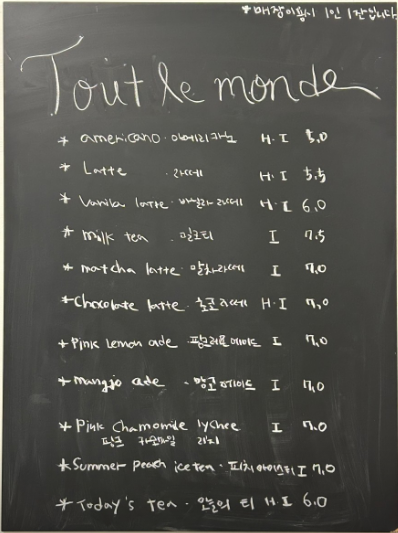 *매장이용시 1인 1잔입니다.
Tout le monde
* americano · 아메리카노 H·I 5,0
* Latte · 라떼 H·I 5,5
* Vanila latte · 바닐라 라떼 H·I 6,0
* milk tea · 밀크티 I 7,5
* matcha latte · 말차라떼 I 7,0
* Chocolate latte · 초코라떼 H·I 7,0
* Pink lemon ade · 핑크레몬에이드 I 7,0
* mango ade · 망고에이드 I 7,0
* Pink Chamomile lychee I 7.0
핑크 캐모마일 리치
* Summer peach ice tea · 피치아이스티 I 7,0
* Today's tea · 오늘의 티 H·I 6.0